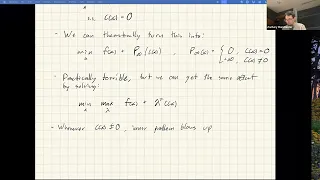 s.t. C(x) = 0
- We can theoretically turn this into:
min x f(x) + P∞(C(x)) , P∞(x) = { 0, C(x)=0
+∞, C(x)≠0
- Practically terrible, but we can get the same effect
by solving:
min x max λ f(x) + λᵀC(x)
- Whenever C(x) ≠ 0, inner problem blows up